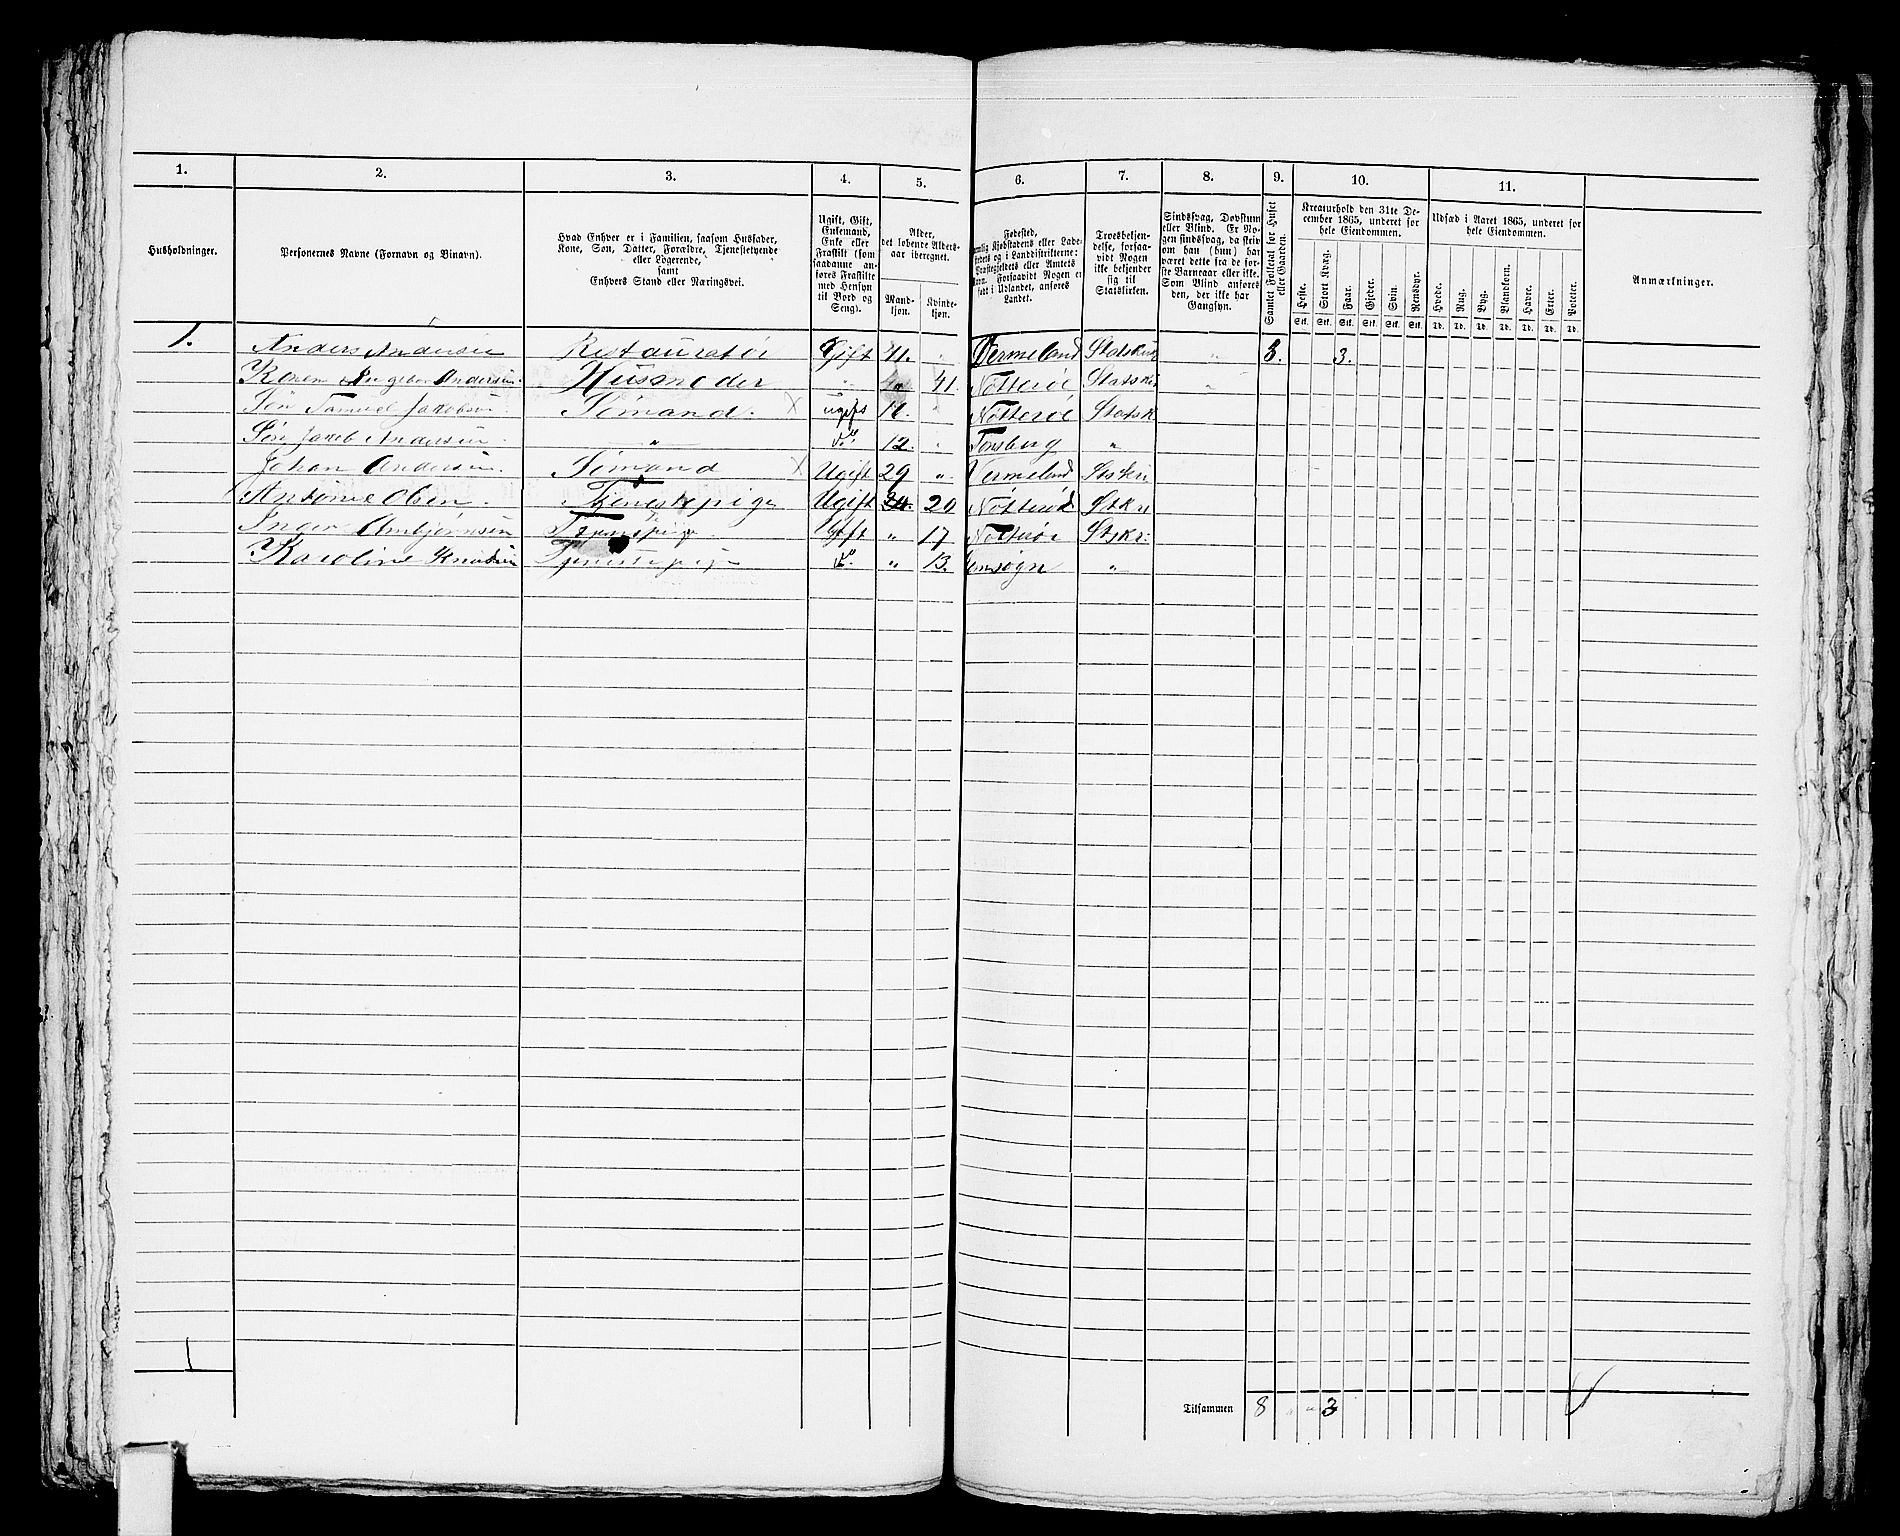 1. 2. 3. 4. 5. 6. 7. 8. 9. 10. 11.
Husholdninger.
Personernes Navne (Fornavn og Binavn).
Hvad Enhver er i Familien, saasom Husfader,
Kone, Søn, Datter, Forældre, Tjenestetyende
eller Logerende,
samt
Enhvers Stand eller Næringsvei.
Ugift, Gift,
Enkemand,
Enke eller
Fraskilt (som
saadanne an-
føres Fraskilte
med Hensyn
til Bord og
Seng).
Alder,
det løbende Alders-
aar iberegnet.
Mand-
kjøn.
Kvinde-
kjøn.
Fødested,
Kjøbstadens eller Lade-
og i Landdistrikterne:
Præstegjeldets eller Amtets
Navn. Forsaavidt Nogen er
født i Udlandet, anføres
Landet.
Troesbekjen-
delse, forsaa-
vidt Nogen
ikke bekjender
sig til
Statskirken.
Sindssvag, Døvstum
eller Blind. Er No-
gen sindssvag, da skriv
om han (hun) har
været dette fra de før-
ste Barneaar eller ikke.
Som Blind anføres
den, der ikke har
Gangsyn.
Samlet Folketal for Huset
eller Gaarden.
Kreaturhold den 31te De-
cember 1865, underet for
hele Eiendommen.
Heste. Stort Kvæg. Faar. Gjeder. Svin. Rensdyr.
Stk. Stk. Stk. Stk. Stk. Stk.
Udsæd i Aaret 1865, underet for
hele Eiendommen.
Hvede. Rug. Byg. Blandkorn. Havre. Erter. Poteter.
Td. Td. Td. Td. Td. Td. Td.
Anmærkninger.
1. Anders Andersen Restauratør Gift 41. " Vermeland Statskir " 8. 3.
Karen Ingebor Andersen. Husmoder " 41. Nøtterøe Statskir "
Søn Samuel Jakobsen Sømand. X ugift " Nøtterøe Statsk
Søn Jakob Andersen " do 12. " Tønsberg "
Johan Andersen. Sømand X Ugift 29 " Vermeland Stskir
Antonie Olsen. Tjenestepige Ugift 20 Nøtterøe Stkir
Inger Ambjørnsen Tjenestepige. Ugift " 17 Nøtterøe Stskr:
Karoline Knudsen Tjenestepige do. " "
Tilsammen 8 " " 3